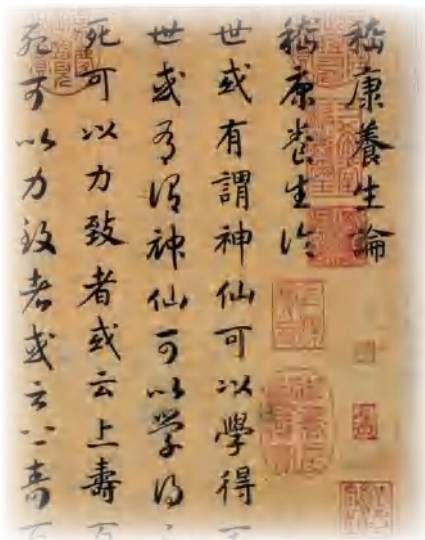 嵇康養生論
嵇康養生論
世或有謂神仙可以學得
世或有謂神仙可以学得
死可以力致者或云上壽百
死可以力致者或云上壽百